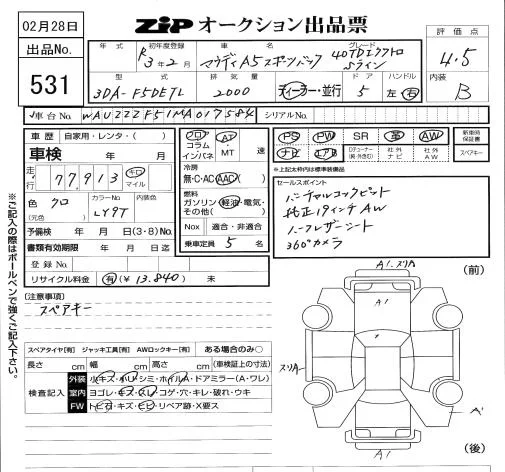 02月28日
ZiP オークション出品票
評価点
出品No.
531
年式
初年度登録
車名
グレード
R3年2月
アウディA5スポーツバック
40TDIクワトロ
Sライン
4.5
型式
排気量
ドア
ハンドル
内装
3DA-F5DETL
2000
ディーラー・並行
5
左・右
B
車台No.
WAUZZZF51MA017584
シリアルNo.
車歴
自家用・レンタ・( )
車検 年 月
走行
77,913
キロ
マイル
色
クロ
(元色)
カラーNo.
LY9T
内装色
予備検 年 月 日(3・8)No.
書類有効期限 年 月 日迄
登録No.
リサイクル料金 有(¥ 13,840 )未
フロア
コラム
インパネ
AT
MT
速
冷房
無・C・AC・AAC
燃料
ガソリン・軽油・電気・
その他( )
Nox 適合・非適合
乗車定員 5 名
PS
PW
SR
革
AW
新車時
保証書
ナビ
エアB
社外
ナビ
社外
AW
スペアキー
※上記太枠内は標準装備品
セールスポイント
バーチャルコックピット
純正19インチAW
ハーフレザーシート
360°カメラ
※ご記入の際はボールペンで強くご記入下さい。
(注意事項)
スペアキー
スペアタイヤ[有]
ジャッキ工具[有]
AWロックキー[有]
ある場合のみ〇
長さ cm 幅 cm 高さ cm (車検証上の寸法)
検査記入
外装 小キズ・小凹・シミ・ホイルA・ドアミラー(A・ワレ)
室内 ヨゴレ・キズ・スレ・コゲ・穴・キレ・破れ・ウキ
FW トビ石・キズ・ヒビ・リペア跡・X要ス
A1.スリA
(前)
A1
スリA
A'
A1
(後)